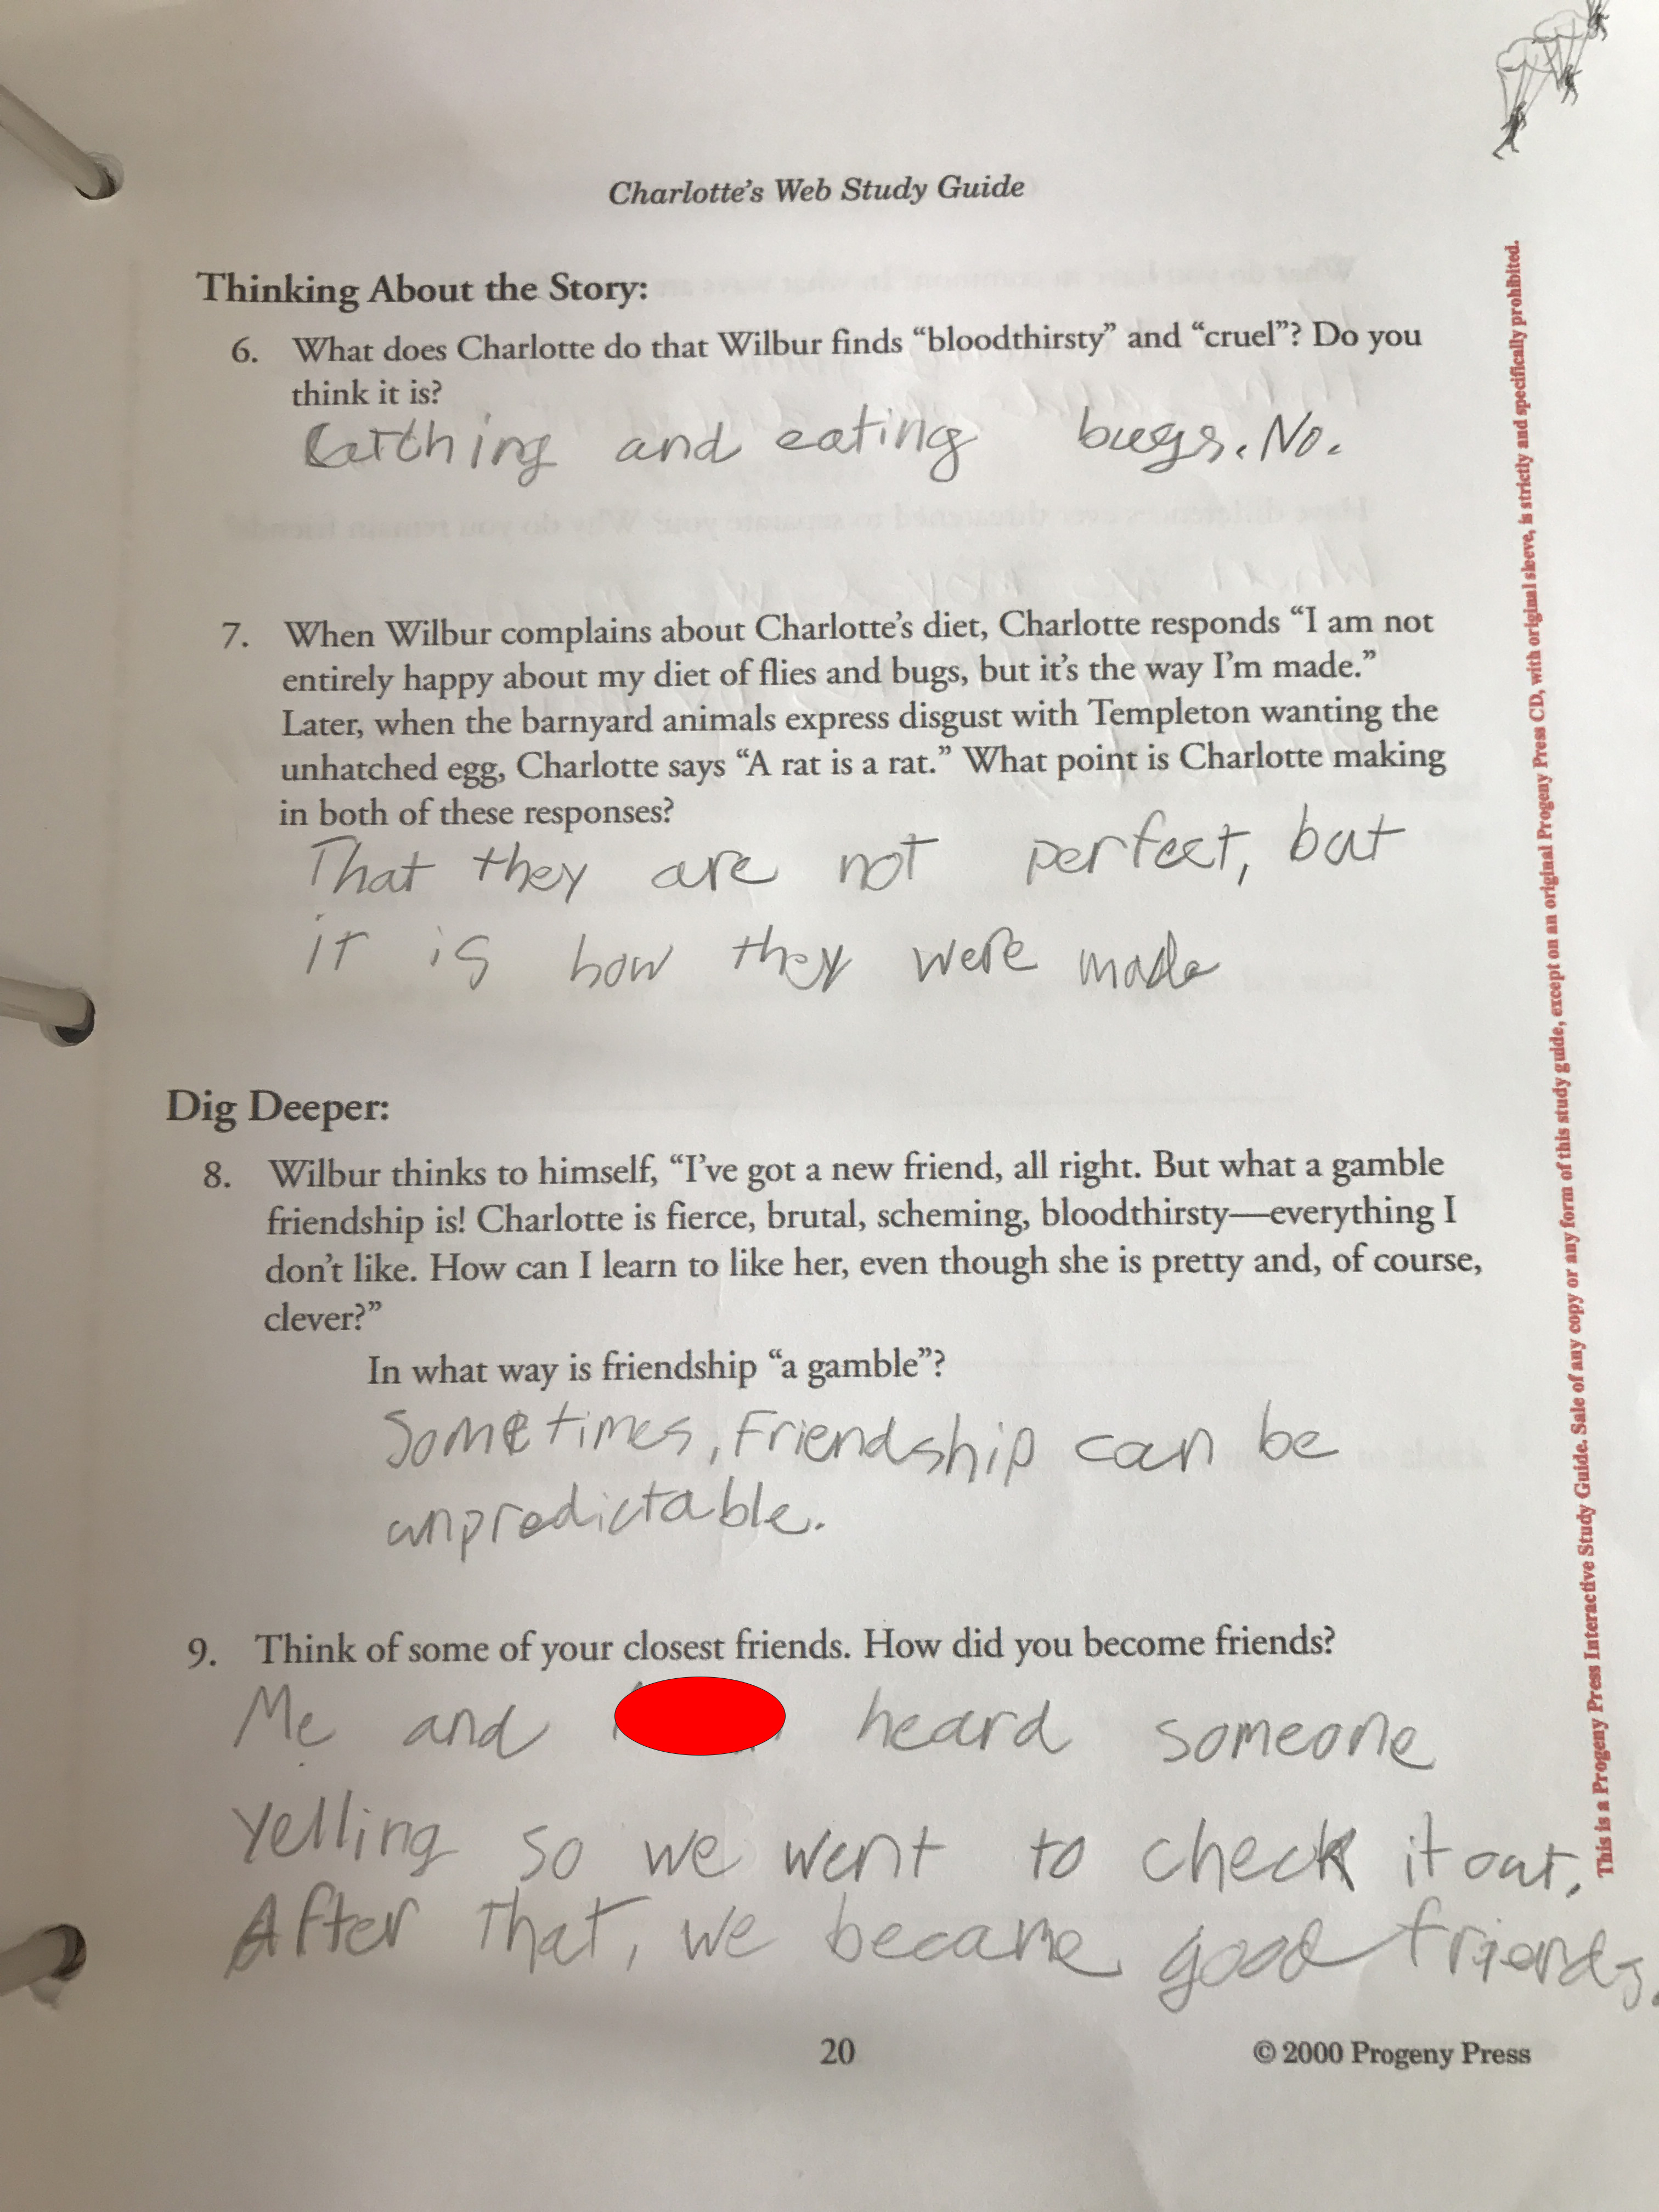 Charlotte's Web Study Guide
Thinking About the Story:
6. What does Charlotte do that Wilbur finds “bloodthirsty” and “cruel”? Do you
think it is?
Catching and eating bugs. No.
7. When Wilbur complains about Charlotte's diet, Charlotte responds “I am not
entirely happy about my diet of flies and bugs, but it's the way I'm made.”
Later, when the barnyard animals express disgust with Templeton wanting the
unhatched egg, Charlotte says “A rat is a rat.” What point is Charlotte making
in both of these responses?
That they are not perfect, but
it is how they were made
Dig Deeper:
8. Wilbur thinks to himself, “I've got a new friend, all right. But what a gamble
friendship is! Charlotte is fierce, brutal, scheming, bloodthirsty—everything I
don't like. How can I learn to like her, even though she is pretty and, of course,
clever?”
In what way is friendship “a gamble”?
Sometimes, Friendship can be
unpredictable.
9. Think of some of your closest friends. How did you become friends?
Me and heard someone
Yelling so we went to check it out,
After that, we became good friends.
20
© 2000 Progeny Press
This is a Progeny Press Interactive Study Guide. Sale of any copy or any form of this study guide, except on an original Progeny Press CD, with original sleeve, is strictly and specifically prohibited.